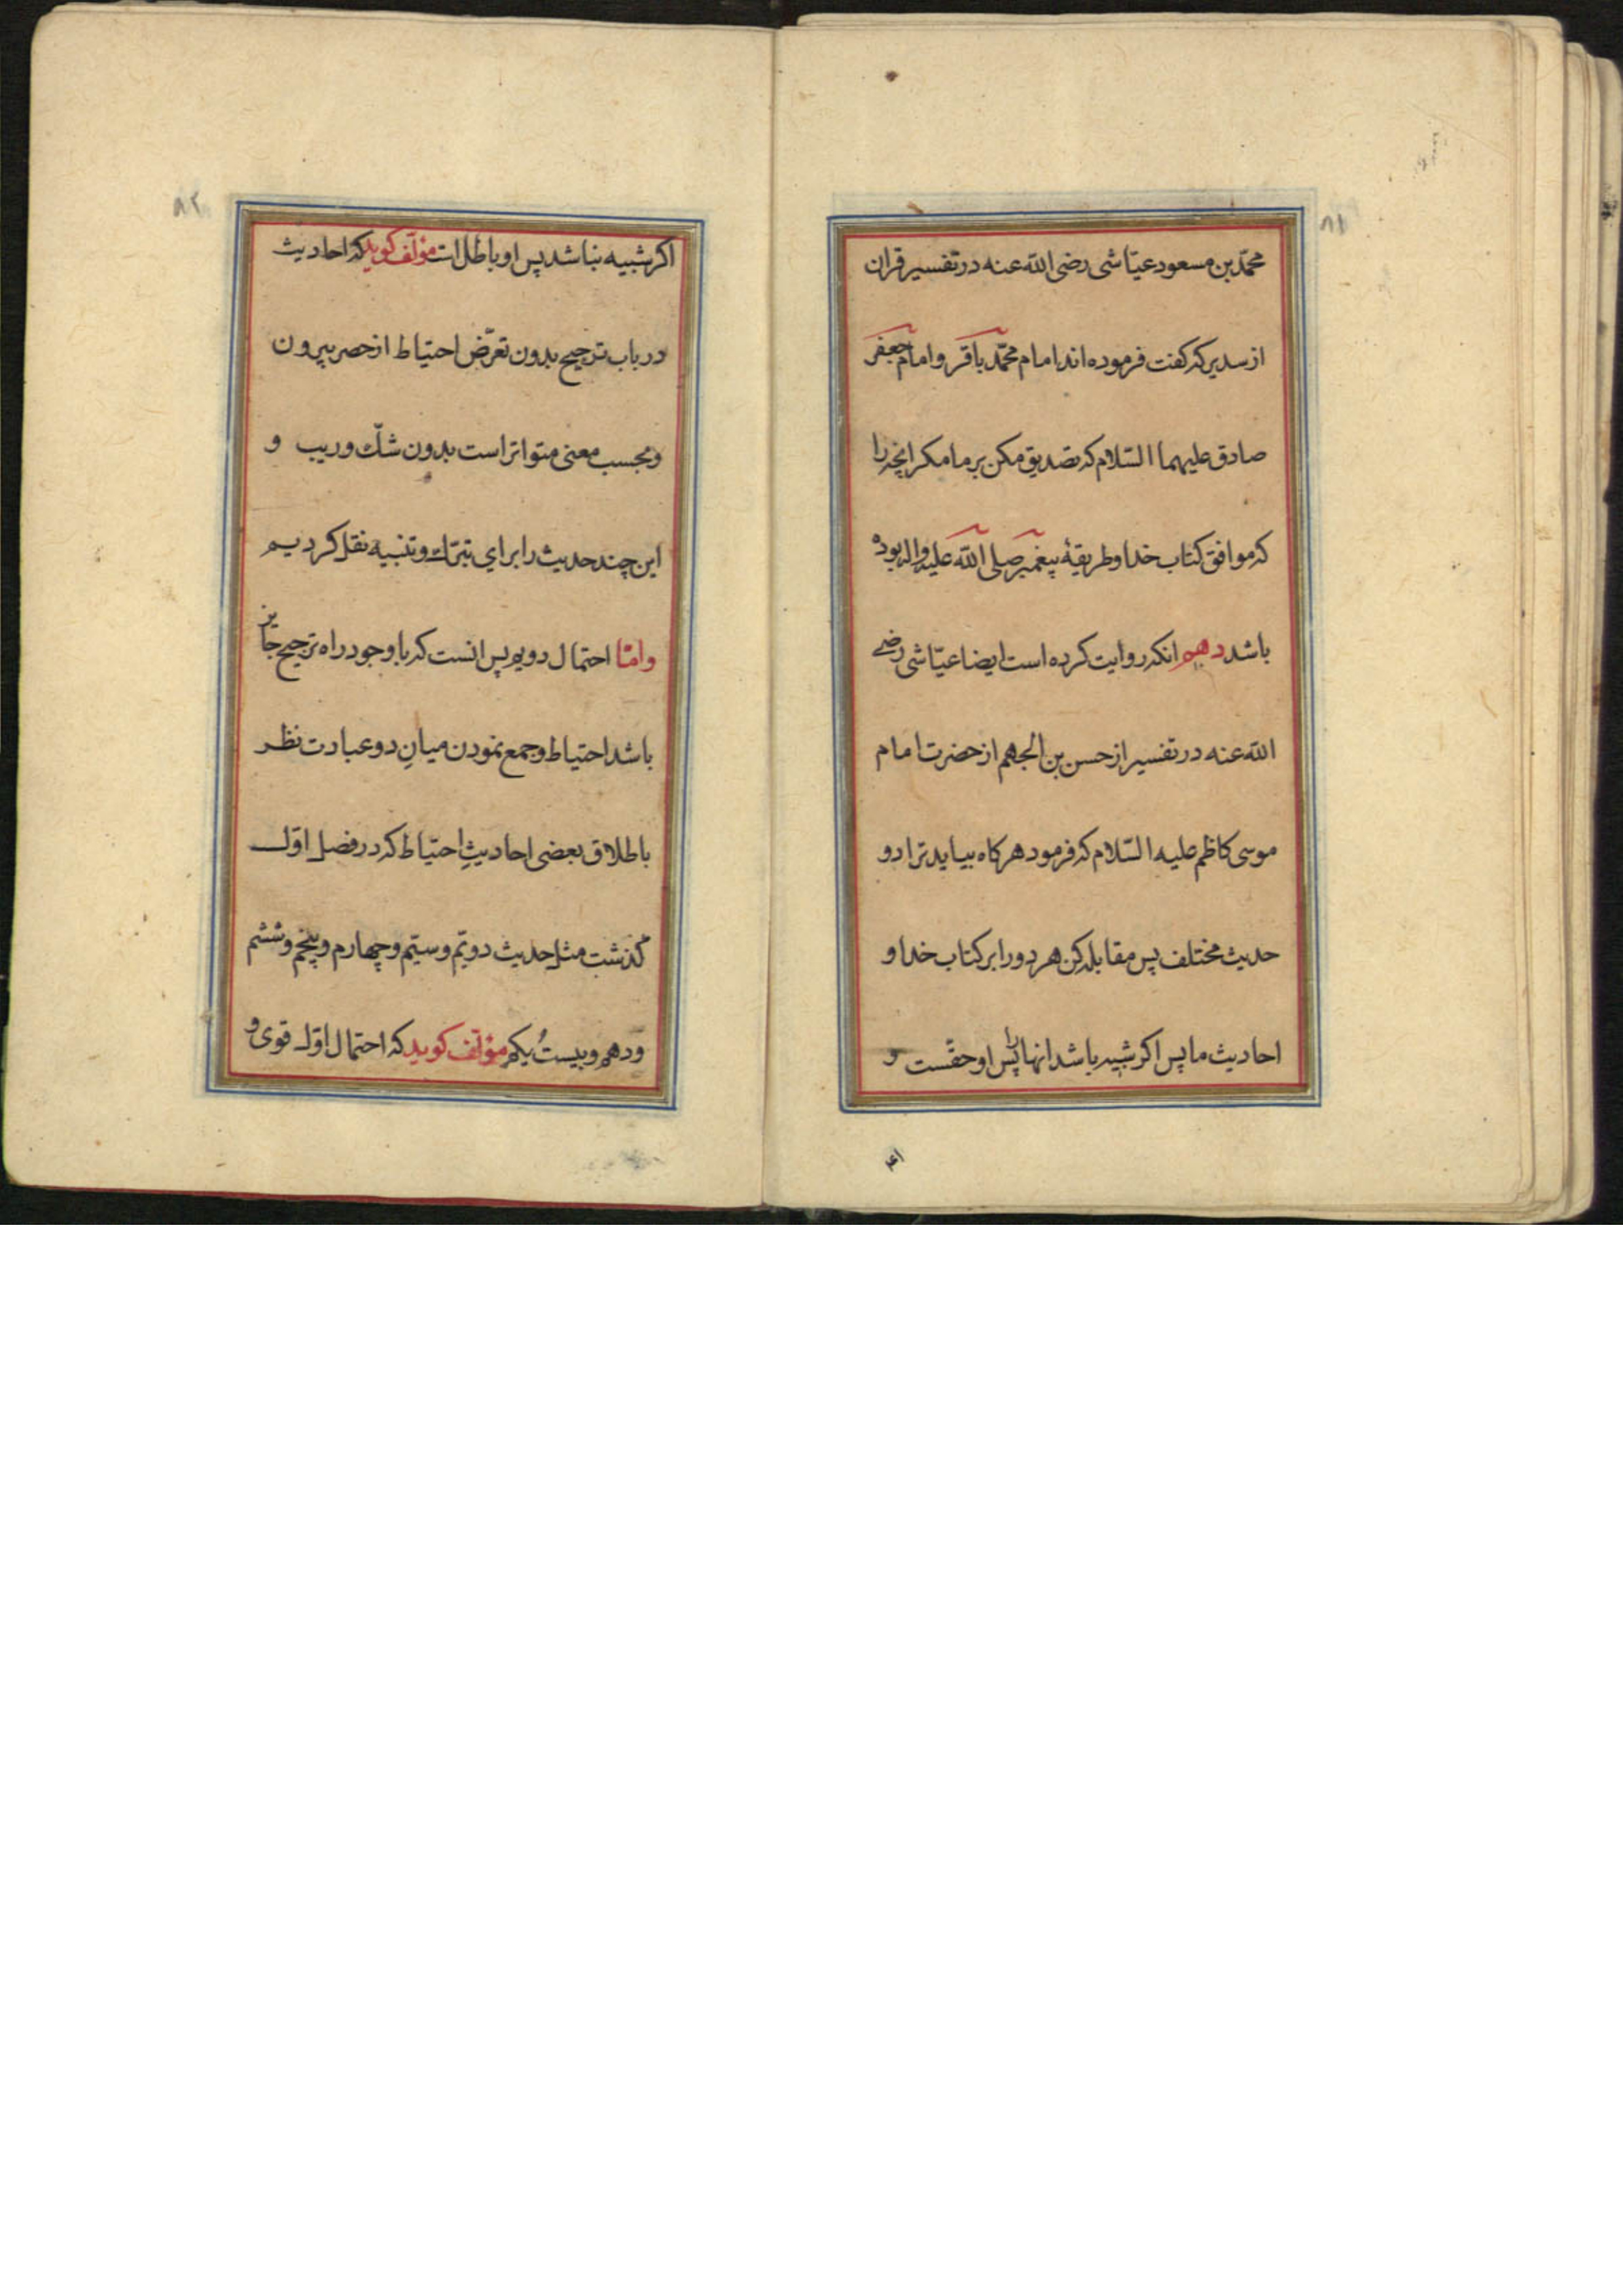 ٨١
محمّد بن مسعود عیّاشی رضی الله عنه در تفسیر قران
از سدیر که کفت فرموده اند امام محمّد باقر و امام جعفر
صادق علیهما السّلام که تصدیق مکن بر ما مکر انچه را
که موافق کتاب خدا و طریقهٔ پیغمبر صلی الله علیه واله بوده
باشد دهم انکه روایت کرده است ایضا عیّاشی رضی
الله عنه در تفسیر از حسن بن الجهم از حضرت امام
موسی کاظم علیه السّلام که فرمود هر کاه بیاید ترا دو
حدیث مختلف پس مقابله کن هر دو را بر کتاب خدا و
احادیث ما پس اکر شبیه باشد انها را پس او حقّست و
٨٢
اکر شبیه نباشد پس او باطل است مؤلّف کوید که احادیث
در باب ترجیح بدون تعرّض احتیاط از حصر بیرون
و بحسب معنی متواتر است بدون شکّ و ریب و
این چند حدیث را برای تبرّک و تنبیه نقل کردیم
و امّا احتمال دویم پس انست که با وجود راه ترجیح جایز
باشد احتیاط و جمع نمودن میانِ دو عبادت نظر
باطلاق بعضی احادیثِ احتیاط که در فصل اوّل
کذشت مثل حدیث دویّم و سیّم و چهارم و پنجم و ششم
و دهم و بیستُ یکم مؤلّف کوید که احتمال اوّل قوی و